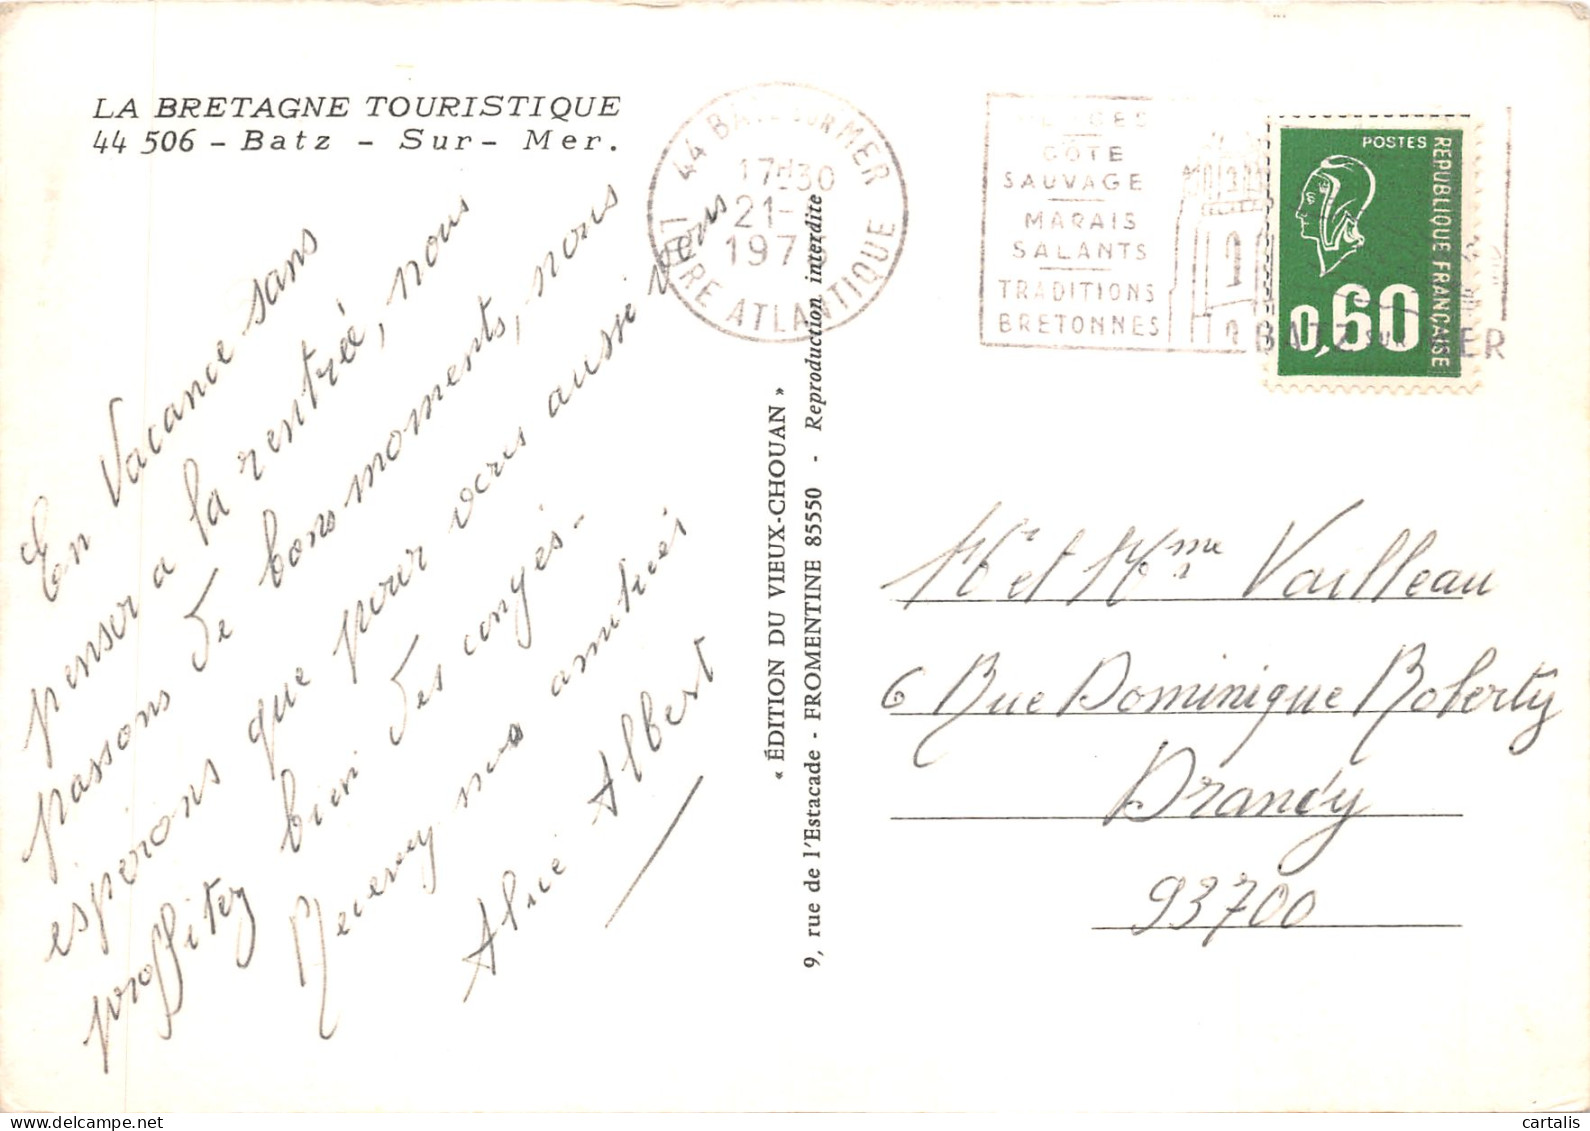 LA BRETAGNE TOURISTIQUE
44 506 - Batz - Sur - Mer.
En Vacance sans
penser a la rentrée, nous
passons de bons moments, nous
espérons que pour vous aussi vous
proffitez bien des congés-
Recevez nos amitiés
Alice Albert
« ÉDITION DU VIEUX-CHOUAN »
9, rue de l'Estacade - FROMENTINE 85550 - Reproduction interdite
44 BATZ SUR MER
17H30
21-
197
LOIRE ATLANTIQUE
CÔTE
SAUVAGE
MARAIS
SALANTS
TRADITIONS
BRETONNES
BATZ SUR MER
POSTES
REPUBLIQUE FRANÇAISE
0,60
Mr et Mme Vailleau
6 Rue Dominique Roberty
Drancy
93700
cartalis